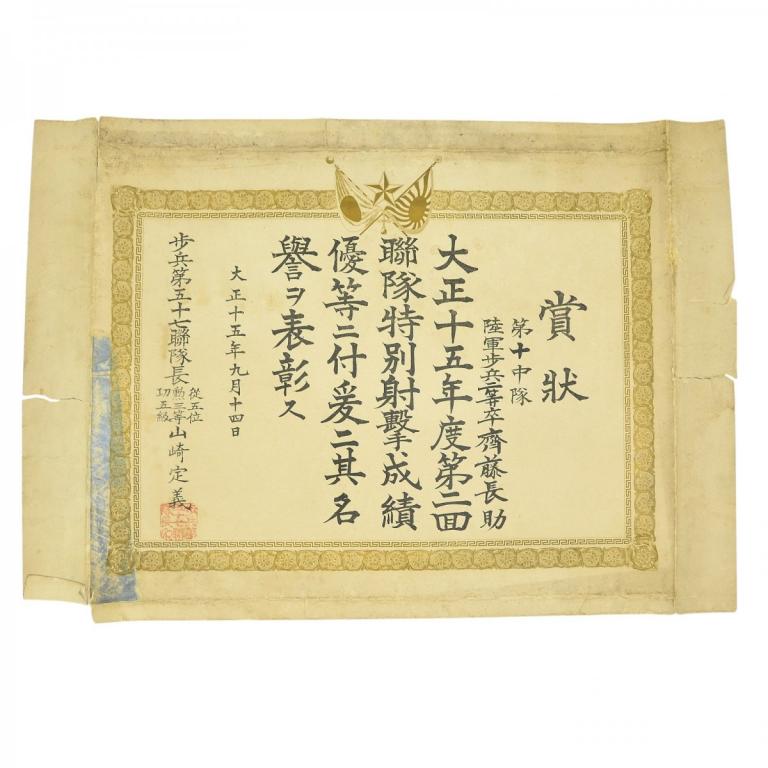 賞狀
第十中隊
陸軍歩兵二等卒齊藤長助
大正十五年度第二回
聯隊特別射擊成績
優等ニ付爰ニ其名
譽ヲ表彰ス
大正十五年九月十四日
歩兵第五十七聯隊長
從五位
勲三等
功五級
山崎定義